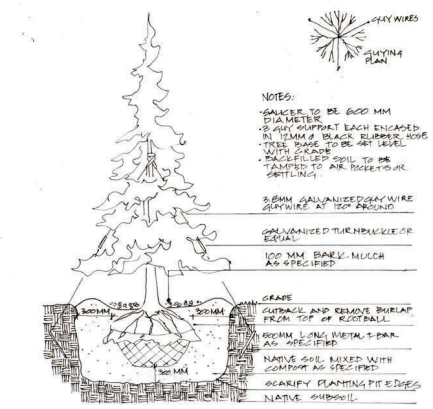 GUY WIRES
GUYING
PLAN
NOTES:
• SAUCER TO BE 600 MM
DIAMETER
• 3 GUY SUPPORT EACH ENCASED
IN 12MM Ø BLACK RUBBER HOSE
• TREE BASE TO BE SET LEVEL
WITH GRADE
• BACKFILLED SOIL TO BE
TAMPED TO AIR POCKETS OR
SETTLING.
3.8MM GALVANIZED GUY WIRE
GUY WIRE AT 120° AROUND
GALVANIZED TURNBUCKLE OR
EQUAL
100 MM BARK MULCH
AS SPECIFIED
GRADE
CUTBACK AND REMOVE BURLAP
FROM TOP OF ROOTBALL
300MM
300MM
500MM LONG METAL T-BAR
AS SPECIFIED
NATIVE SOIL MIXED WITH
COMPOST AS SPECIFIED
300 MM
SCARIFY PLANTING PIT EDGES
NATIVE SUBSOIL